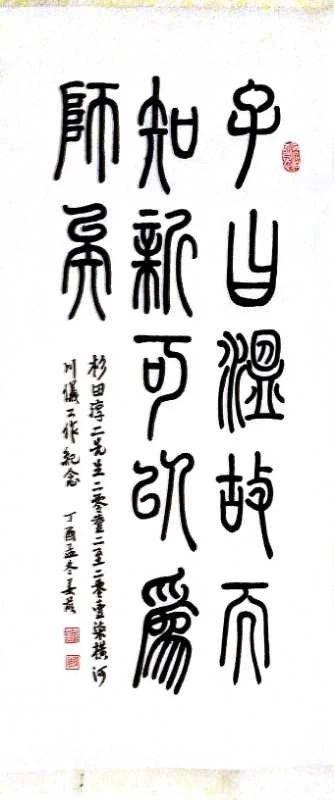 子曰溫故而
知新可以為
師矣
杉田淳二先生二零壹二至二零壹柒橫河
川儀工作紀念 丁酉孟冬姜嚴